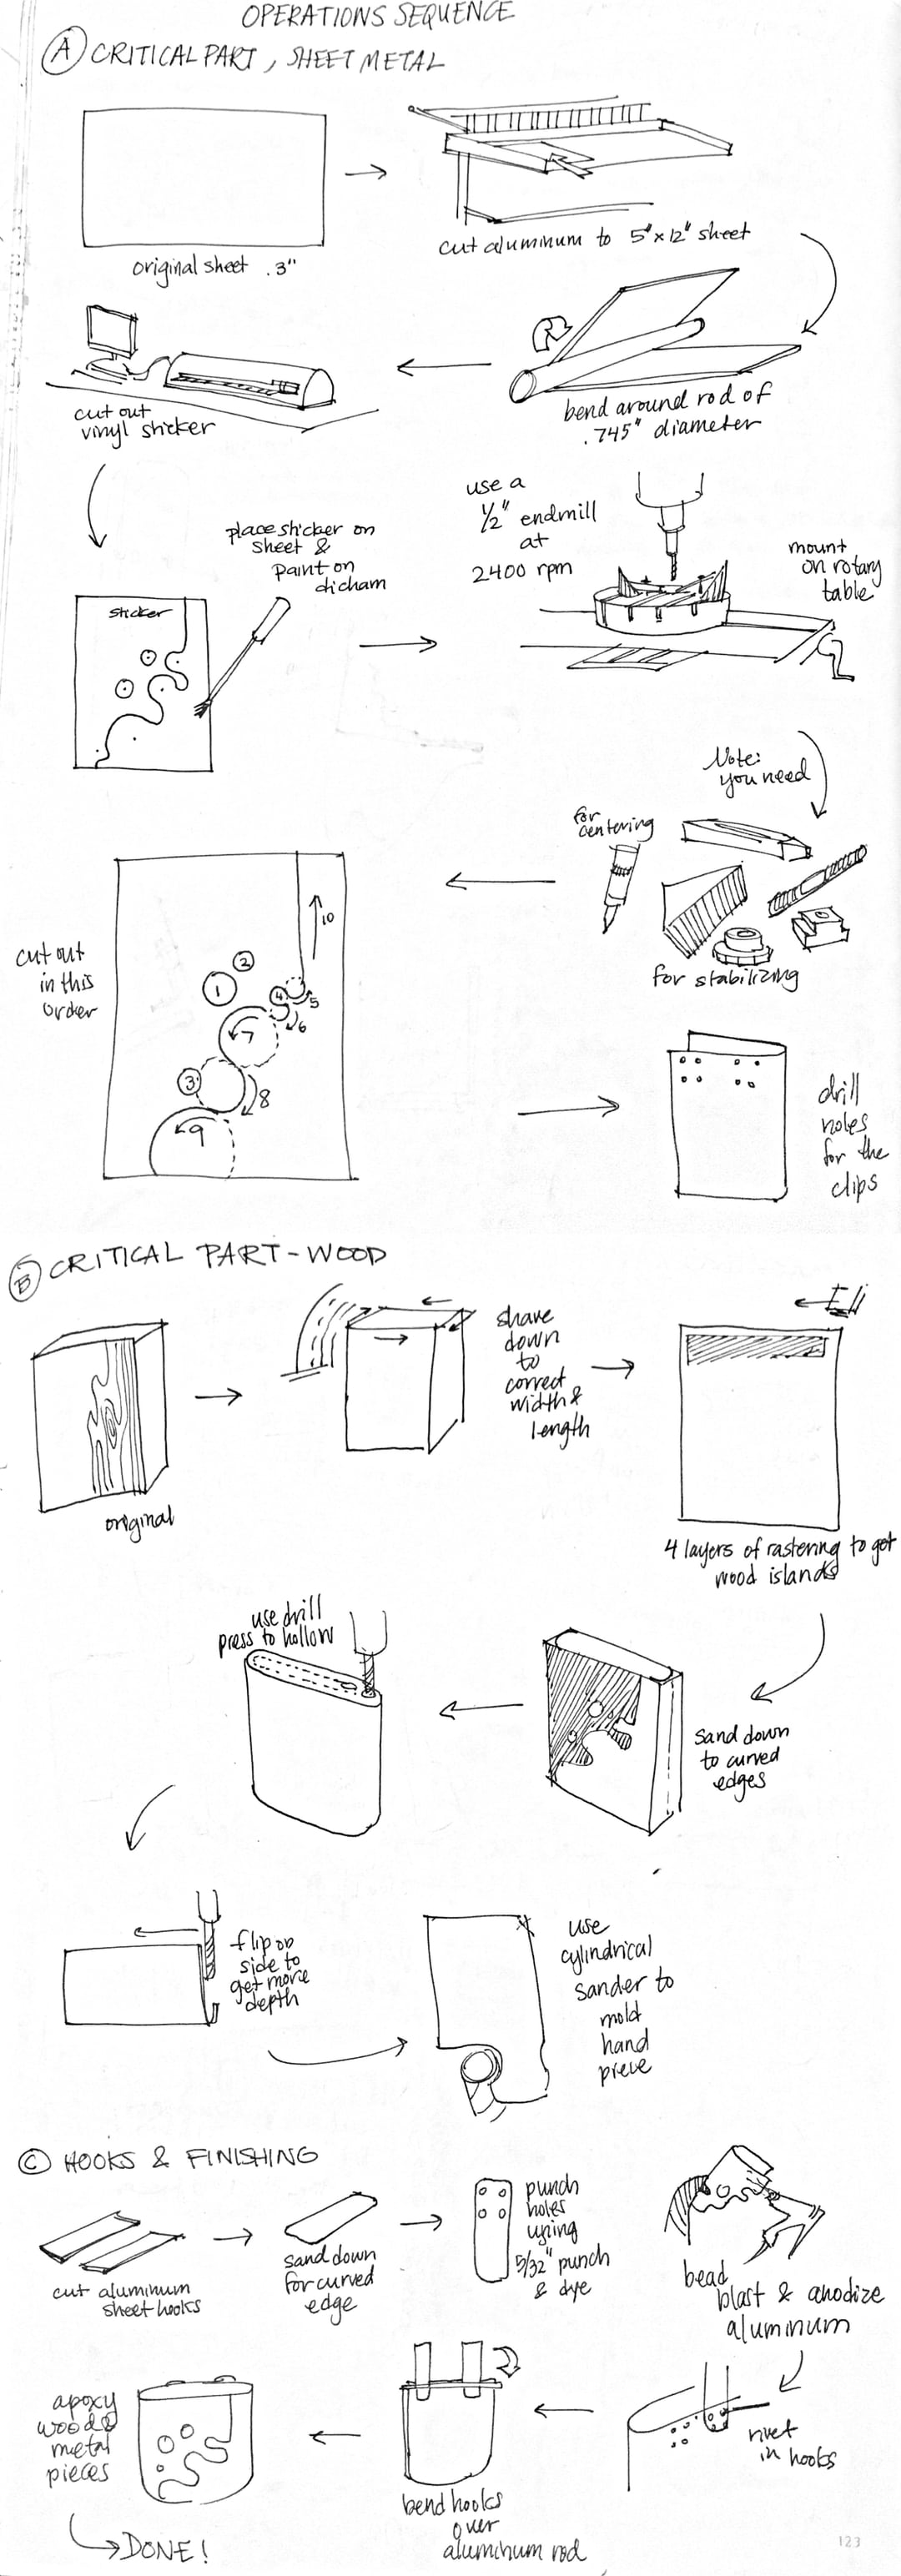 OPERATIONS SEQUENCE
A CRITICAL PART, SHEET METAL
original sheet .3"
cut aluminum to 5"x12" sheet
bend around rod of
.745" diameter
cut out
vinyl sticker
place sticker on
sheet &
paint on
dicham
sticker
use a
1/2" endmill
at
2400 rpm
mount
on rotary
table
Note:
you need
for
centering
for stabilizing
cut out
in this
order
1
2
3
4
5
6
7
8
9
10
drill
holes
for the
clips
B CRITICAL PART-WOOD
original
shave
down
to
correct
width &
length
4 layers of rastering to get
wood islands
sand down
to curved
edges
use drill
press to hollow
flip on
side to
get more
depth
use
cylindrical
sander to
mold
hand
piece
C HOOKS & FINISHING
cut aluminum
sheet hooks
sand down
for curved
edge
punch
holes
using
5/32" punch
& dye
bead
blast & anodize
aluminum
rivet
in hooks
bend hooks
over
aluminum rod
apoxy
wood &
metal
pieces
DONE!
123